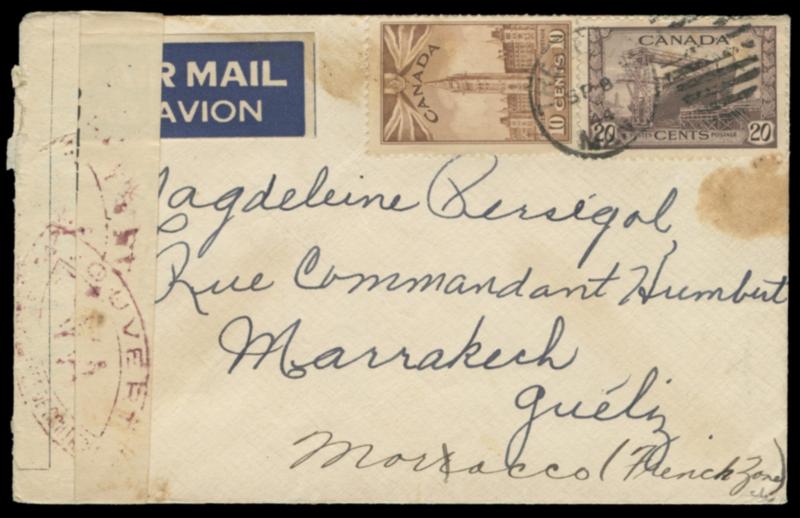 R MAIL
AVION
CANADA
10 CENTS 10
CANADA
20 CENTS POSTES POSTAGE 20
SP 8
44
agdeleine Perségol,
Rue Commandant Humbert
Marrakech
guéliz
Morrocco (French Zone)
OUVERT